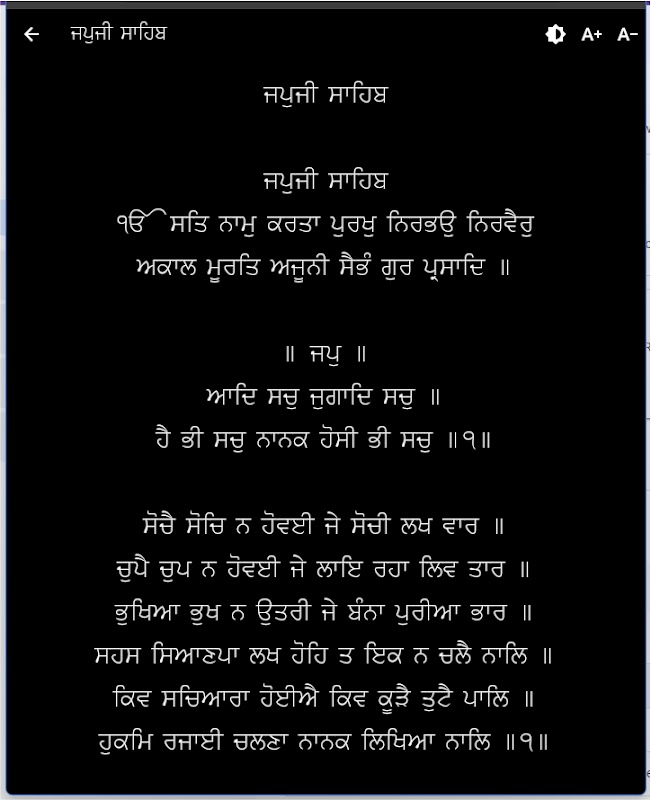 ਜਪੁਜੀ ਸਾਹਿਬ A+ A-
ਜਪੁਜੀ ਸਾਹਿਬ
ਜਪੁਜੀ ਸਾਹਿਬ
ੴ ਸਤਿ ਨਾਮੁ ਕਰਤਾ ਪੁਰਖੁ ਨਿਰਭਉ ਨਿਰਵੈਰੁ
ਅਕਾਲ ਮੂਰਤਿ ਅਜੂਨੀ ਸੈਭੰ ਗੁਰ ਪ੍ਰਸਾਦਿ ॥
॥ ਜਪੁ ॥
ਆਦਿ ਸਚੁ ਜੁਗਾਦਿ ਸਚੁ ॥
ਹੈ ਭੀ ਸਚੁ ਨਾਨਕ ਹੋਸੀ ਭੀ ਸਚੁ ॥੧॥
ਸੋਚੈ ਸੋਚਿ ਨ ਹੋਵਈ ਜੇ ਸੋਚੀ ਲਖ ਵਾਰ ॥
ਚੁਪੈ ਚੁਪ ਨ ਹੋਵਈ ਜੇ ਲਾਇ ਰਹਾ ਲਿਵ ਤਾਰ ॥
ਭੁਖਿਆ ਭੁਖ ਨ ਉਤਰੀ ਜੇ ਬੰਨਾ ਪੁਰੀਆ ਭਾਰ ॥
ਸਹਸ ਸਿਆਣਪਾ ਲਖ ਹੋਹਿ ਤ ਇਕ ਨ ਚਲੈ ਨਾਲਿ ॥
ਕਿਵ ਸਚਿਆਰਾ ਹੋਈਐ ਕਿਵ ਕੂੜੈ ਤੁਟੈ ਪਾਲਿ ॥
ਹੁਕਮਿ ਰਜਾਈ ਚਲਣਾ ਨਾਨਕ ਲਿਖਿਆ ਨਾਲਿ ॥੧॥